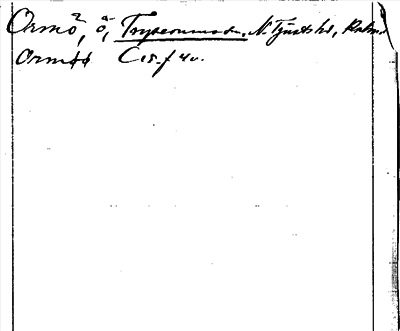 Ormö, ö, Tryserums sn, N. Tjusts hd, Kalm.
Ormöö C 15 f 40.